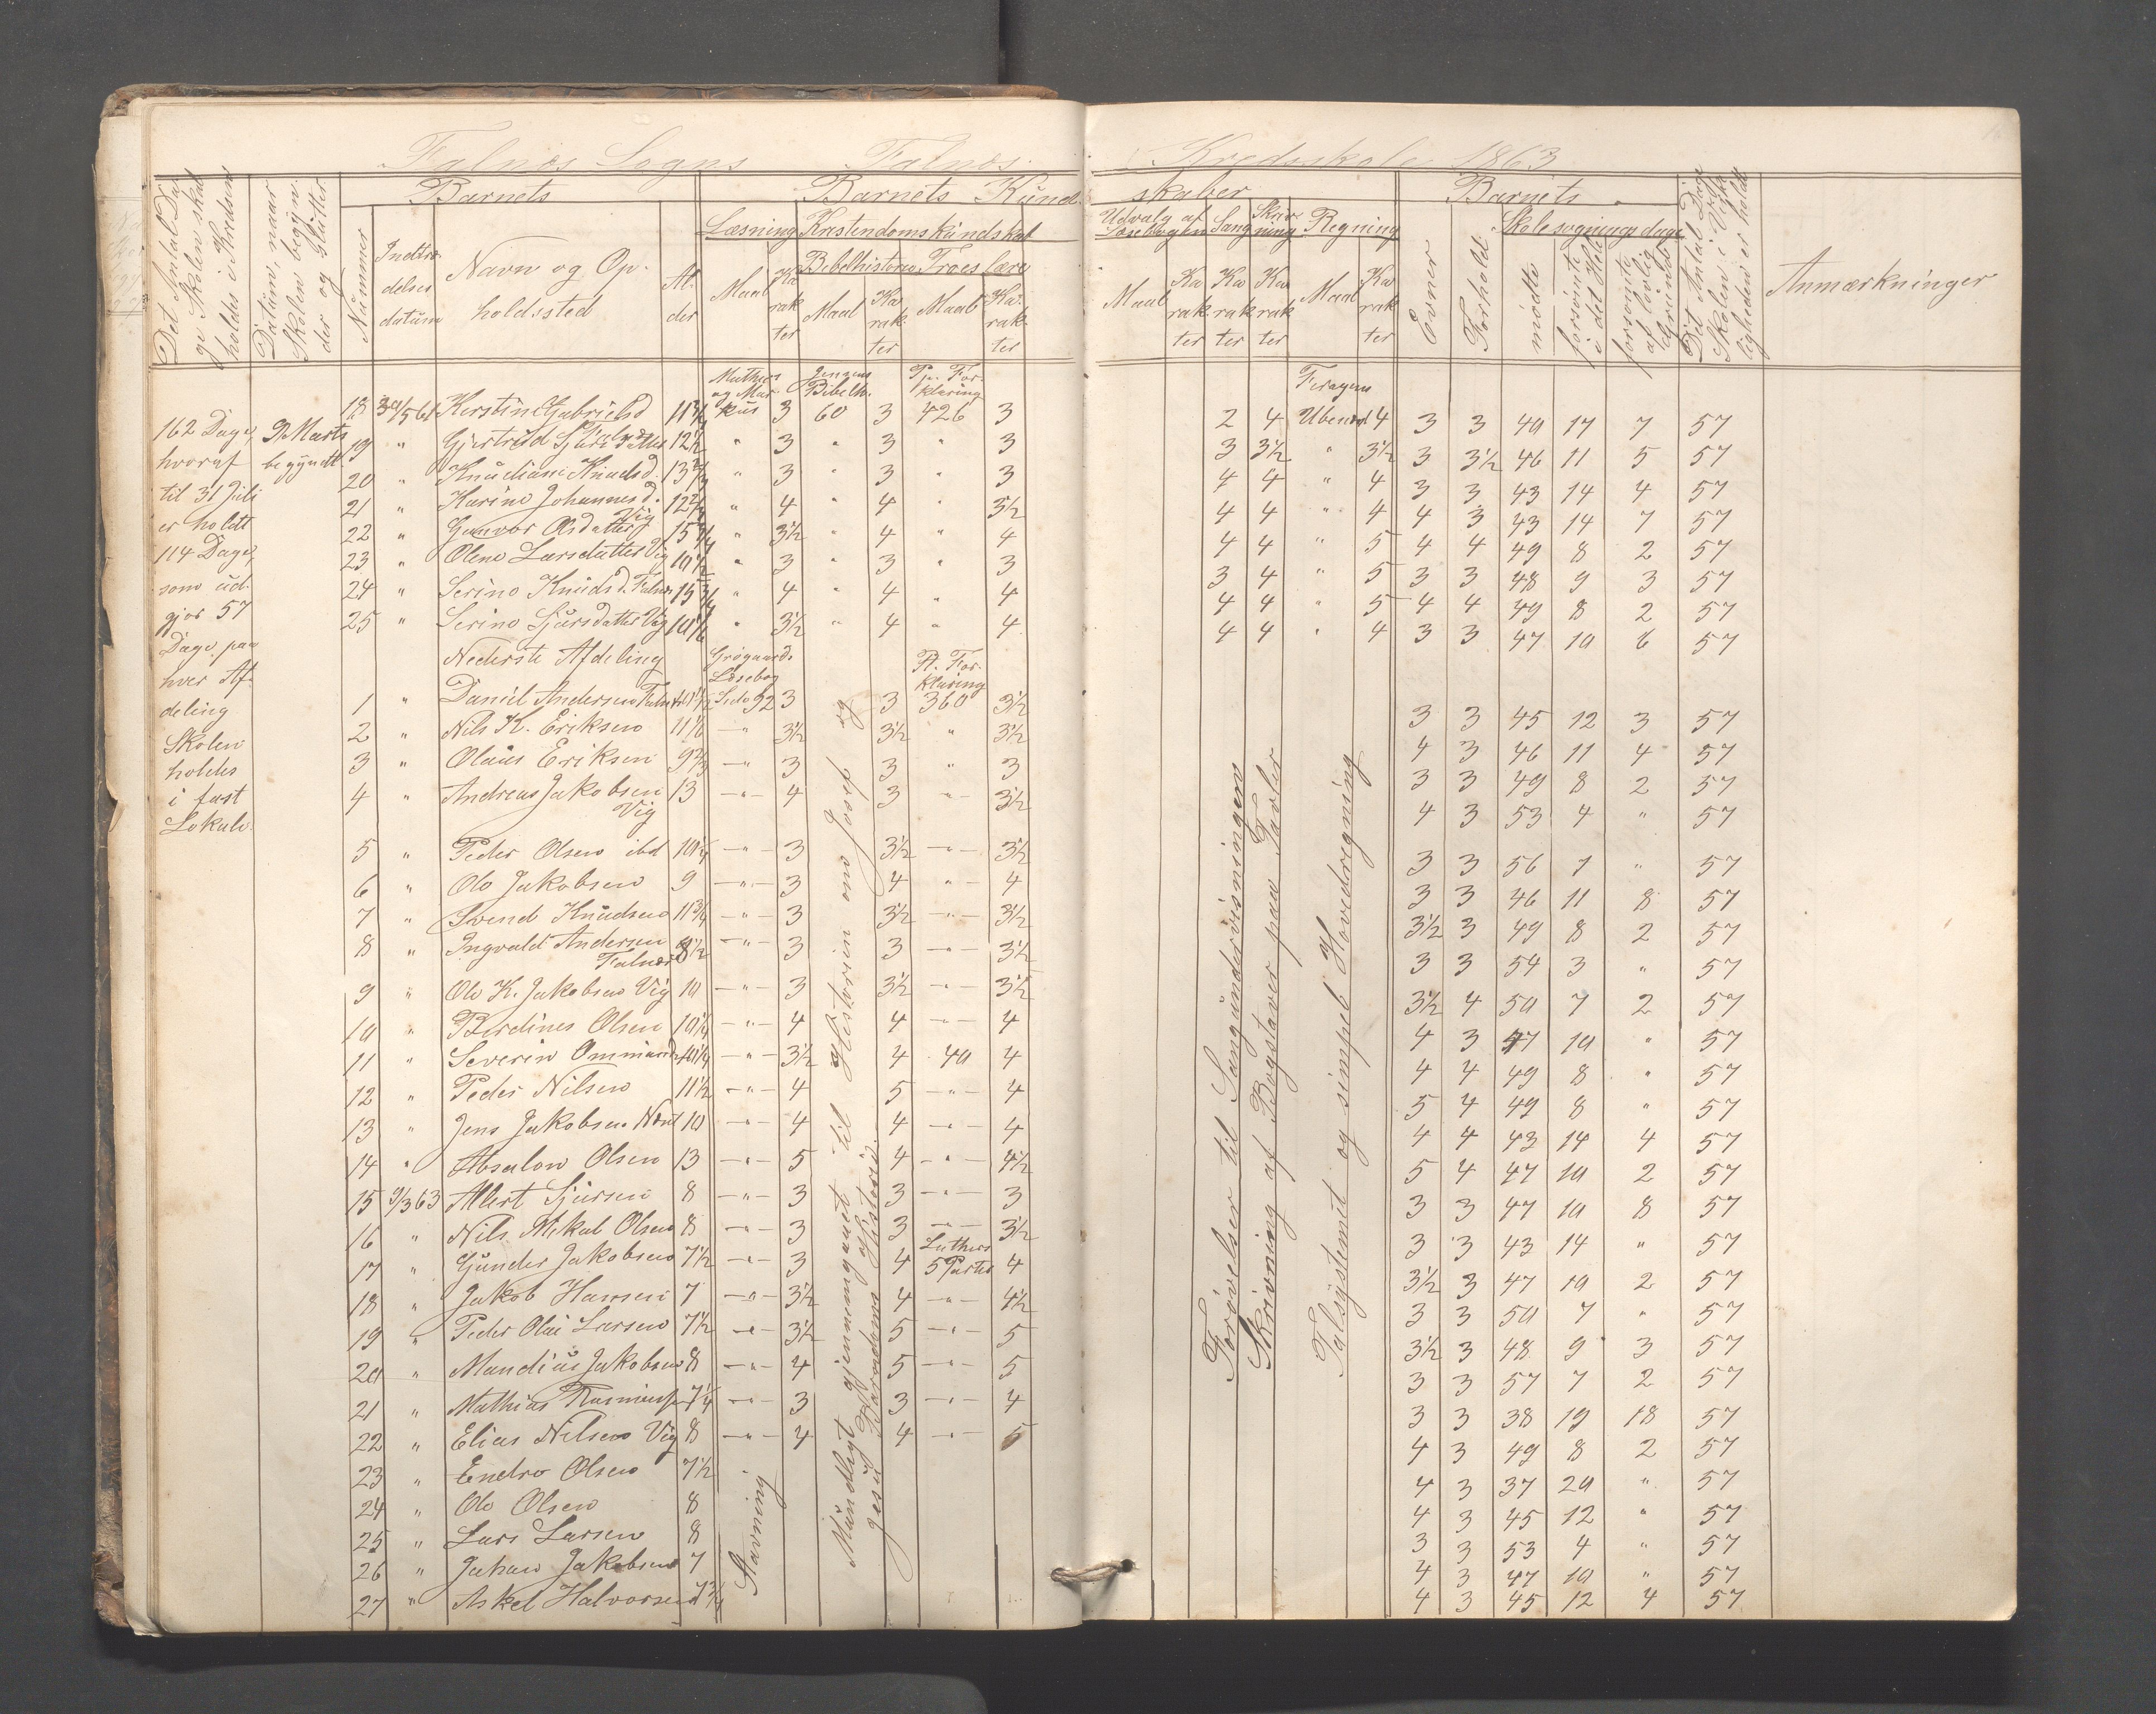 Falnæs Sogns Falnæs Kredsskole 1863
Det Antal Dage Skolen skal holdes i Kredsen
Datum, naar Skolen begynder og slutter
Nummer
Barnets
Indtrædelsesdatum
Navn og Opholdssted
Alder
Barnets Kundskaber
Læsning
Maal
Karakter
Kristendomskundskab
Bibelhistorie
Maal
Karakter
Troeslære
Maal
Karakter
Udvalg af Læsebogen
Maal
Karakter
Sang
Karakter
Skrivning
Karakter
Regning
Maal
Karakter
Barnets
Evner
Forhold
Skolesøgningsdage
mødte
forsømte i det Hele
forsømte af lovlig Grund
Det Antal Dage Skolen i Virkeligheden er holdt
Anmærkninger
162 Dage,
hvoraf
til 31 Juli
er holdt
114 Dage,
som ud-
gjør 57
Dage paa
hver Af-
deling
Skolen
holdes
i fast
Lokale.
9 Marts
begyndt
Mathæus og Markus
Jensens Bibelh.
P. Forklaring
18 Kirstine Gabrielsd 11 3/4 3 60 3 426 3 2 4 4 3 3 40 17 7 57
19 " Gjertrud Sjursdatter 12 1/2 " 3 " 3 " 3 3 3 1/2 " 3 1/2 3 3 1/2 46 11 5 57
20 " Knudiane Knudsd. " 3 " 3 " 3 4 4 " 4 3 3 43 14 4 57
21 " Karine Johannesd. Vig " 4 " 4 " 3 1/2 4 4 " 4 4 3 43 14 7 57
22 " Gunvor Olsdatter " 3 1/2 " 4 " 4 4 4 " 5 4 4 49 8 2 57
23 " Olene Larsdatter Vig 10 1/2 " 3 " 3 " 3 3 4 " 5 3 3 48 9 3 57
24 " Serine Knudsd. Falnæs 15 3/4 " 4 " 4 " 4 4 4 " 5 4 4 49 8 2 57
25 " Serine Sjursdatter Vig " 3 1/2 " 4 " 4 4 4 " 4 3 3 47 10 6 57
Nederste Afdeling Grøgaards Læsebog P. Forklaring
1 " Daniel Andersen Falnæs Side 92 3 3 360 3 1/2 3 3 45 12 3 57
2 " Nils K. Eriksen 3 1/2 3 1/2 " 3 1/2 4 3 46 11 4 57
3 " Olaus Eriksen 9 2/3 -"- 3 3 " 3 3 3 49 8 2 57
4 " Andreas Jakobsen Vig 13 -"- 4 3 -"- 3 1/2 4 3 53 4 " 57
5 " Peder Olsen ibd -"- 3 3 1/2 -"- 3 1/2 3 3 56 1 " 57
6 " Ole Jakobsen 9 -"- 3 4 "- 4 3 3 46 11 8 57
7 " Svend Knudsen 11 3/4 -"- 3 3 1/2 -"- 3 1/2 3 1/2 3 49 8 2 57
8 " Ingvald Andersen Falnæs 8 1/2 -"- 3 3 -"- 3 1/2 3 3 54 3 " 57
9 " Ole K. Jakobsen Vig 10 -"- 3 3 1/2 -"- 3 1/2 3 1/2 4 50 7 2 57
10 " Berdines Olsen 10 1/4 -"- 4 4 -"- 4 4 3 47 10 " 57
11 " Severin Ommunds. -"- 3 1/2 4 40 4 4 4 49 8 " 57
12 " Peder Nilsen 11 1/2 -"- 4 5 -"- 4 5 4 49 8 " 57
13 " Jens Jakobsen 10 -"- 4 4 -"- 4 4 4 43 14 4 57
14 " Absalon Olsen 13 -"- 5 4 -"- 4 1/2 5 4 47 10 2 57
15 9/3 63 Albert Sjursen 8 -"- 3 3 -"- 3 3 3 47 10 8 57
16 " Nils Mikal Olsen 8 -"- 3 3 -"- 3 1/2 3 3 43 14 " 57
17 " Gunder Jakobsen 7 1/2 -"- 3 4 Luthers 5 Parter 4 3 1/2 3 47 10 2 57
18 " Jakob Hansen 7 -"- 3 1/2 4 -"- 4 1/2 3 3 50 7 " 57
19 " Peder Olai Larsen 7 1/2 -"- 3 1/2 5 -"- 5 3 1/2 3 48 9 3 57
20 " Mandius Jakobsen 8 -"- 4 5 -"- 5 3 3 57 7 2 57
21 " Mathias Rasmuss. 7 1/4 -"- 3 3 -"- 4 3 3 38 19 18 57
22 " Elias Nilsen Vig 8 -"- 4 4 -"- 5 4 3 49 8 2 57
23 " Endre Olsen 7 1/2 4 3 37 20 " 57
24 " Ole Olsen 8 4 3 45 12 " 57
25 " Lars Larsen 8 3 3 53 4 " 57
26 " Johan Jakobsen 7 4 3 47 10 " 57
27 " Askel Halvorsen 7 3/4 4 3 45 12 4 57
Stavning
Mundtligt gjennemgaaet til Historien om Josef og
Jesu Barndoms Historie.
Forøvelser til Sangundervisningen
Skrivning af Bogstaver paa Tavler
Talsystemet og simpel Hovedregning